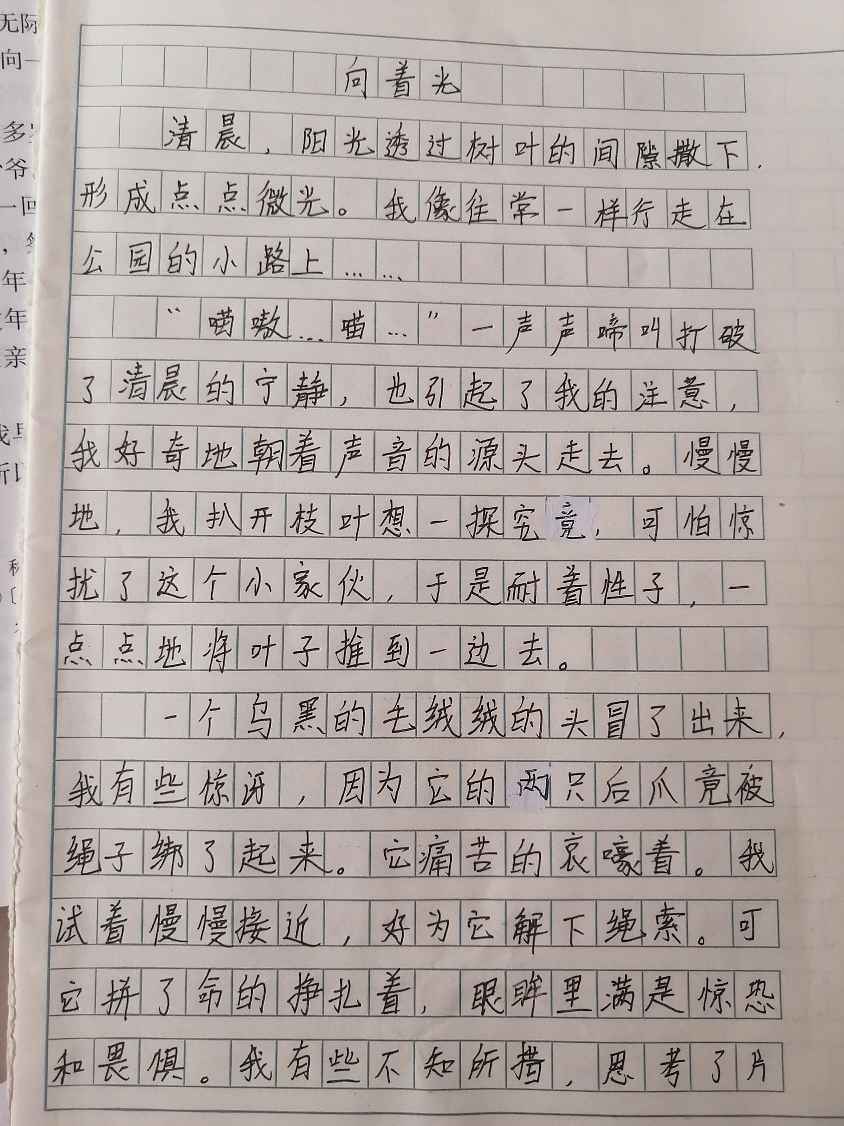 向着光
清晨，阳光透过树叶的间隙撒下，
形成点点微光。我像往常一样行走在
公园的小路上……
“喵嗷…喵…”一声声啼叫打破
了清晨的宁静，也引起了我的注意，
我好奇地朝着声音的源头走去。慢慢
地，我扒开枝叶想一探究竟，可怕惊
扰了这个小家伙，于是耐着性子，一
点点地将叶子推到一边去。
一个乌黑的毛绒绒的头冒了出来，
我有些惊讶，因为它的两只后爪竟被
绳子绑了起来。它痛苦的哀嚎着。我
试着慢慢接近，好为它解下绳索。可
它拼了命的挣扎着，眼眸里满是惊恐
和畏惧。我有些不知所措，思考了片
无际
向一
多
爷
一回
年
年
亲